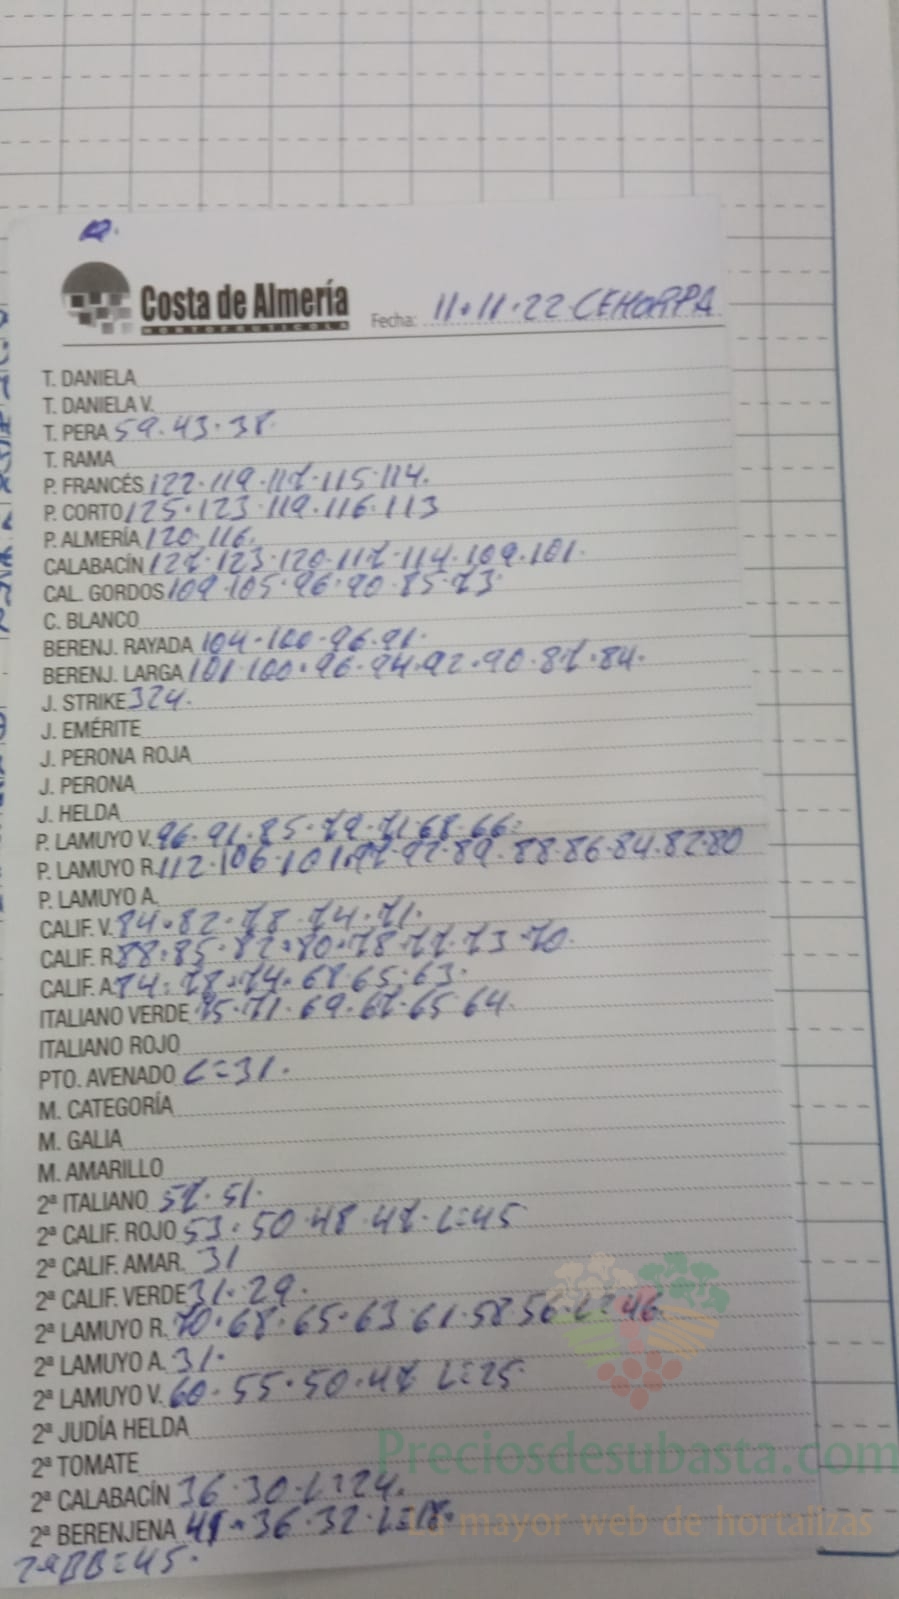 Costa de Almería
HORTOFRUTICOLA
Fecha: 11·11·22 CEHORPA
T. DANIELA
T. DANIELA V.
T. PERA 59·43·38·
T. RAMA
P. FRANCÉS 122·119·117·115·114.
P. CORTO 125·123·119·116·113
P. ALMERÍA 120·116.
CALABACÍN 127·123·120·117·114·109·101·
CAL. GORDOS 109·105·96·90·85·73·
C. BLANCO
BERENJ. RAYADA 104·100·96·91·
BERENJ. LARGA 101·100·96·94·92·90·87·84·
J. STRIKE 324.
J. EMÉRITE
J. PERONA ROJA
J. PERONA
J. HELDA
P. LAMUYO V. 96·91·85·79·71·68·66·
P. LAMUYO R. 112·106·101·97·92·89·88·86·84·82·80
P. LAMUYO A.
CALIF. V. 84·82·78·74·71·
CALIF. R. 88·85·82·80·78·77·73·70·
CALIF. A. 84·78·74·68·65·63·
ITALIANO VERDE 75·71·69·67·65·64·
ITALIANO ROJO
PTO. AVENADO L=31·
M. CATEGORÍA
M. GALIA
M. AMARILLO
2ª ITALIANO 57·51·
2ª CALIF. ROJO 53·50·48·47·L=45
2ª CALIF. AMAR. 31
2ª CALIF. VERDE 31·29·
2ª LAMUYO R. 70·68·65·63·61·58·56·L=46
2ª LAMUYO A. 31·
2ª LAMUYO V. 60·55·50·47 L=25·
2ª JUDÍA HELDA
2ª TOMATE
2ª CALABACÍN 36·30·L=24.
2ª BERENJENA 41·36·32·L=18·
2ªBB=45·
Preciosdesubasta.com
La mayor web de hortalizas